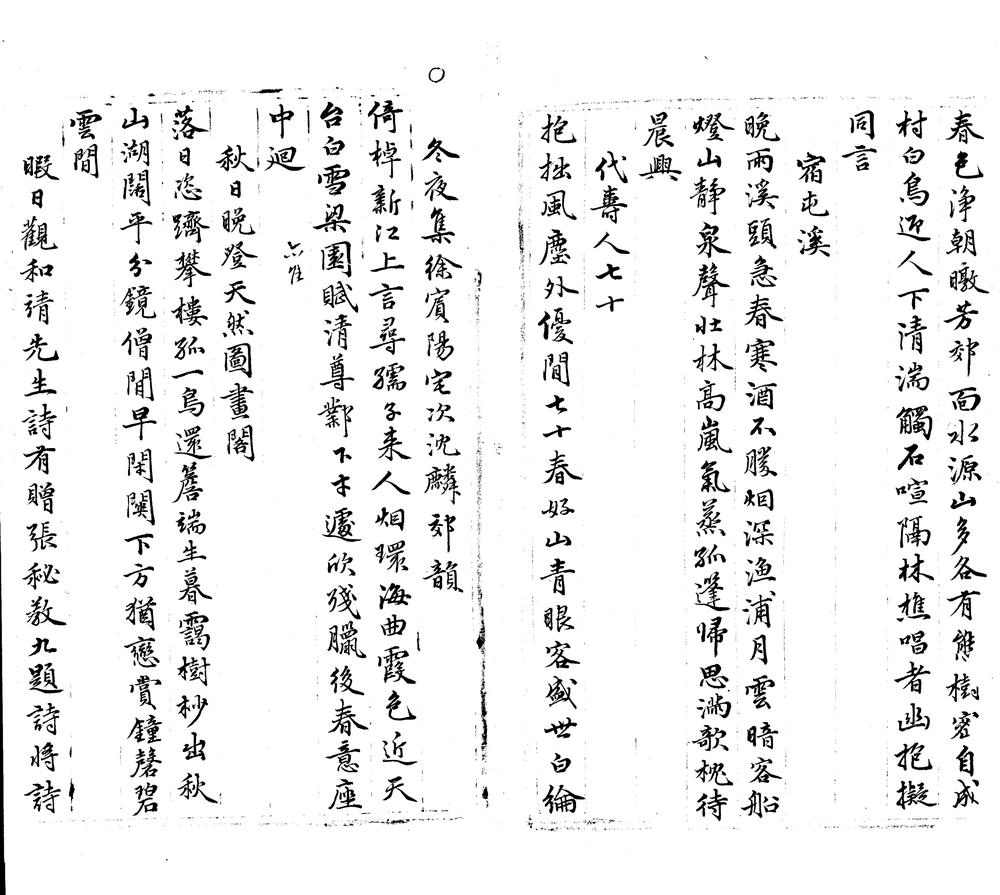 春色淨朝暾芳郊面水源山多各有態樹密自成
村白鳥迎人下清湍觸石喧隔林樵唱者幽抱擬
同言
宿屯溪
晚雨溪頭急春寒酒不勝烟深漁浦月雲暗客船
燈山靜泉聲壯林高嵐氣蒸孤蓬歸思滿歌枕待
晨興
代壽人七十
抱拙風塵外優閒七十春好山青眼客盛世白綸
冬夜集徐賓陽宅次沈麟郊韻
倚棹新江上言尋孺子来人烟環海曲霞色近天
台白雪梁園賦清尊鄴下才遽欣殘臘後春意座
中迴
秋日晚登天然圖畫閣
落日恣躋攀樓孤一鳥還簷端生暮靄樹杪出秋
山湖闊平分鏡僧閒早閑關下方猶戀賞鐘磬碧
雲間
暇日觀和靖先生詩有贈張秘教九題詩將詩